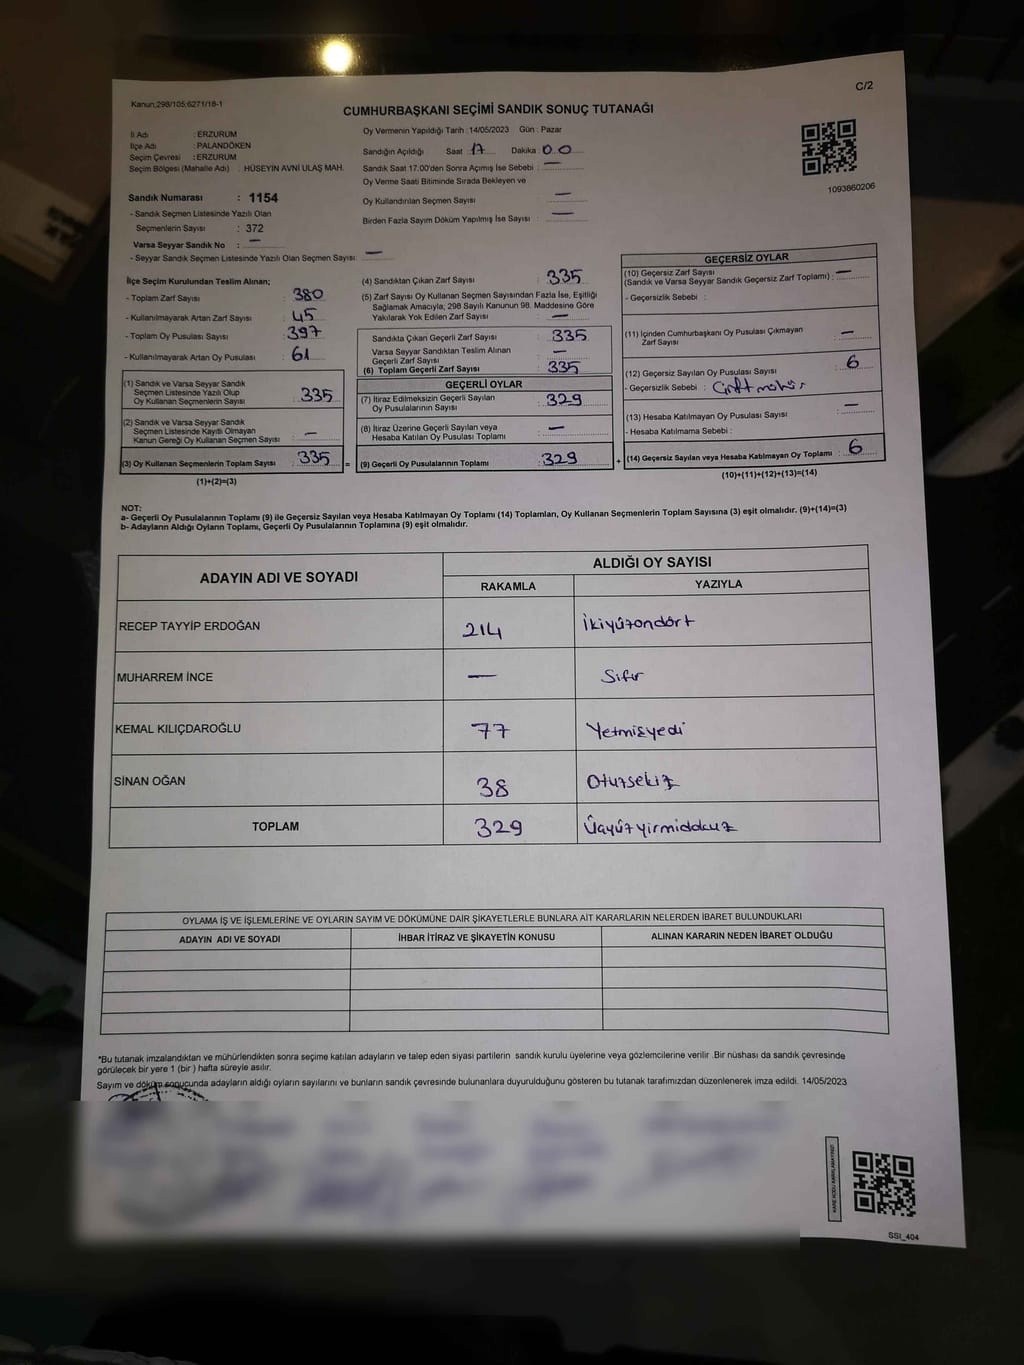 C/2
Kanun;298/105;6271/18-1
CUMHURBAŞKANI SEÇİMİ SANDIK SONUÇ TUTANAĞI
İl Adı : ERZURUM
İlçe Adı : PALANDÖKEN
Seçim Çevresi : ERZURUM
Seçim Bölgesi (Mahalle Adı) : HÜSEYİN AVNİ ULAŞ MAH.
Sandık Numarası : 1154
- Sandık Seçmen Listesinde Yazılı Olan
Seçmenlerin Sayısı : 372
Varsa Seyyar Sandık No : —
- Seyyar Sandık Seçmen Listesinde Yazılı Olan Seçmen Sayısı: —
Oy Vermenin Yapıldığı Tarih :14/05/2023 Gün : Pazar
Sandığın Açıldığı Saat : 17 Dakika : 00
Sandık Saat 17.00'den Sonra Açımış İse Sebebi : —
Oy Verme Saati Bitiminde Sırada Bekleyen ve
Oy Kullandırılan Seçmen Sayısı : —
Birden Fazla Sayım Döküm Yapılmış İse Sayısı : —
1093860206
İlçe Seçim Kurulundan Teslim Alınan;
- Toplam Zarf Sayısı : 380
- Kullanılmayarak Artan Zarf Sayısı : 45
- Toplam Oy Pusulası Sayısı : 397
- Kullanılmayarak Artan Oy Pusulası : 61
(1) Sandık ve Varsa Seyyar Sandık
Seçmen Listesinde Yazılı Olup
Oy Kullanan Seçmenlerin Sayısı : 335
(2) Sandık ve Varsa Seyyar Sandık
Seçmen Listesinde Kayıtlı Olmayan
Kanun Gereği Oy Kullanan Seçmen Sayısı : —
(3) Oy Kullanan Seçmenlerin Toplam Sayısı : 335
(1)+(2)=(3)
(4) Sandıktan Çıkan Zarf Sayısı : 335
(5) Zarf Sayısı Oy Kullanan Seçmen Sayısından Fazla İse, Eşitliği
Sağlamak Amacıyla; 298 Sayılı Kanunun 98. Maddesine Göre
Yakılarak Yok Edilen Zarf Sayısı : —
Sandıkta Çıkan Geçerli Zarf Sayısı : 335
Varsa Seyyar Sandıktan Teslim Alınan
Geçerli Zarf Sayısı : —
(6) Toplam Geçerli Zarf Sayısı : 335
GEÇERLİ OYLAR
(7) İtiraz Edilmeksizin Geçerli Sayılan
Oy Pusulalarının Sayısı : 329
(8) İtiraz Üzerine Geçerli Sayılan veya
Hesaba Katılan Oy Pusulası Toplamı : —
= (9) Geçerli Oy Pusulalarının Toplamı : 329
GEÇERSİZ OYLAR
(10) Geçersiz Zarf Sayısı
(Sandık ve Varsa Seyyar Sandık Geçersiz Zarf Toplamı) : —
- Geçersizlik Sebebi :
(11) İçinden Cumhurbaşkanı Oy Pusulası Çıkmayan
Zarf Sayısı : —
(12) Geçersiz Sayılan Oy Pusulası Sayısı : 6
- Geçersizlik Sebebi : Çift mühür
(13) Hesaba Katılmayan Oy Pusulası Sayısı : —
- Hesaba Katılmama Sebebi :
+ (14) Geçersiz Sayılan veya Hesaba Katılmayan Oy Toplamı : 6
(10)+(11)+(12)+(13)=(14)
NOT:
a- Geçerli Oy Pusulalarının Toplamı (9) ile Geçersiz Sayılan veya Hesaba Katılmayan Oy Toplamı (14) Toplamları, Oy Kullanan Seçmenlerin Toplam Sayısına (3) eşit olmalıdır. (9)+(14)=(3)
b- Adayların Aldığı Oyların Toplamı, Geçerli Oy Pusulalarının Toplamına (9) eşit olmalıdır.
ADAYIN ADI VE SOYADI ALDIĞI OY SAYISI
RAKAMLA YAZIYLA
RECEP TAYYİP ERDOĞAN 214 İkiyüzondört
MUHARREM İNCE — Sıfır
KEMAL KILIÇDAROĞLU 77 Yetmişyedi
SİNAN OĞAN 38 Otuzsekiz
TOPLAM 329 Üçyüzyirmidokuz
OYLAMA İŞ VE İŞLEMLERİNE VE OYLARIN SAYIM VE DÖKÜMÜNE DAİR ŞİKAYETLERLE BUNLARA AİT KARARLARIN NELERDEN İBARET BULUNDUKLARI
ADAYIN ADI VE SOYADI İHBAR İTİRAZ VE ŞİKAYETİN KONUSU ALINAN KARARIN NEDEN İBARET OLDUĞU
*Bu tutanak imzalandıktan ve mühürlendikten sonra seçime katılan adayların ve talep eden siyasi partilerin sandık kurulu üyelerine veya gözlemcilerine verilir .Bir nüshası da sandık çevresinde
görülecek bir yere 1 (bir ) hafta süreyle asılır.
Sayım ve döküm sonucunda adayların aldığı oyların sayılarını ve bunların sandık çevresinde bulunanlara duyurulduğunu gösteren bu tutanak tarafımızdan düzenlenerek imza edildi. 14/05/2023
SSI_404